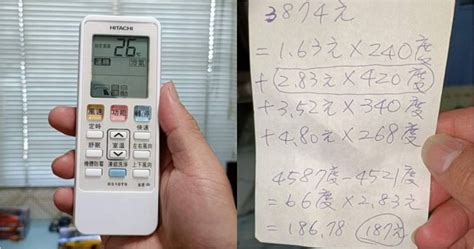 HITACHI
設定溫度
26℃
冷氣
風速
功能
停/開
定時
快速
舒眠
室溫
左右風向
機體防霉
凍結洗淨
上下風向
3874元
=1.63元×240度
+2.83元×420度
+3.52元×340度
+4.80元×268度
4587度-4521度
=66度×2.83元
=186.78 187元